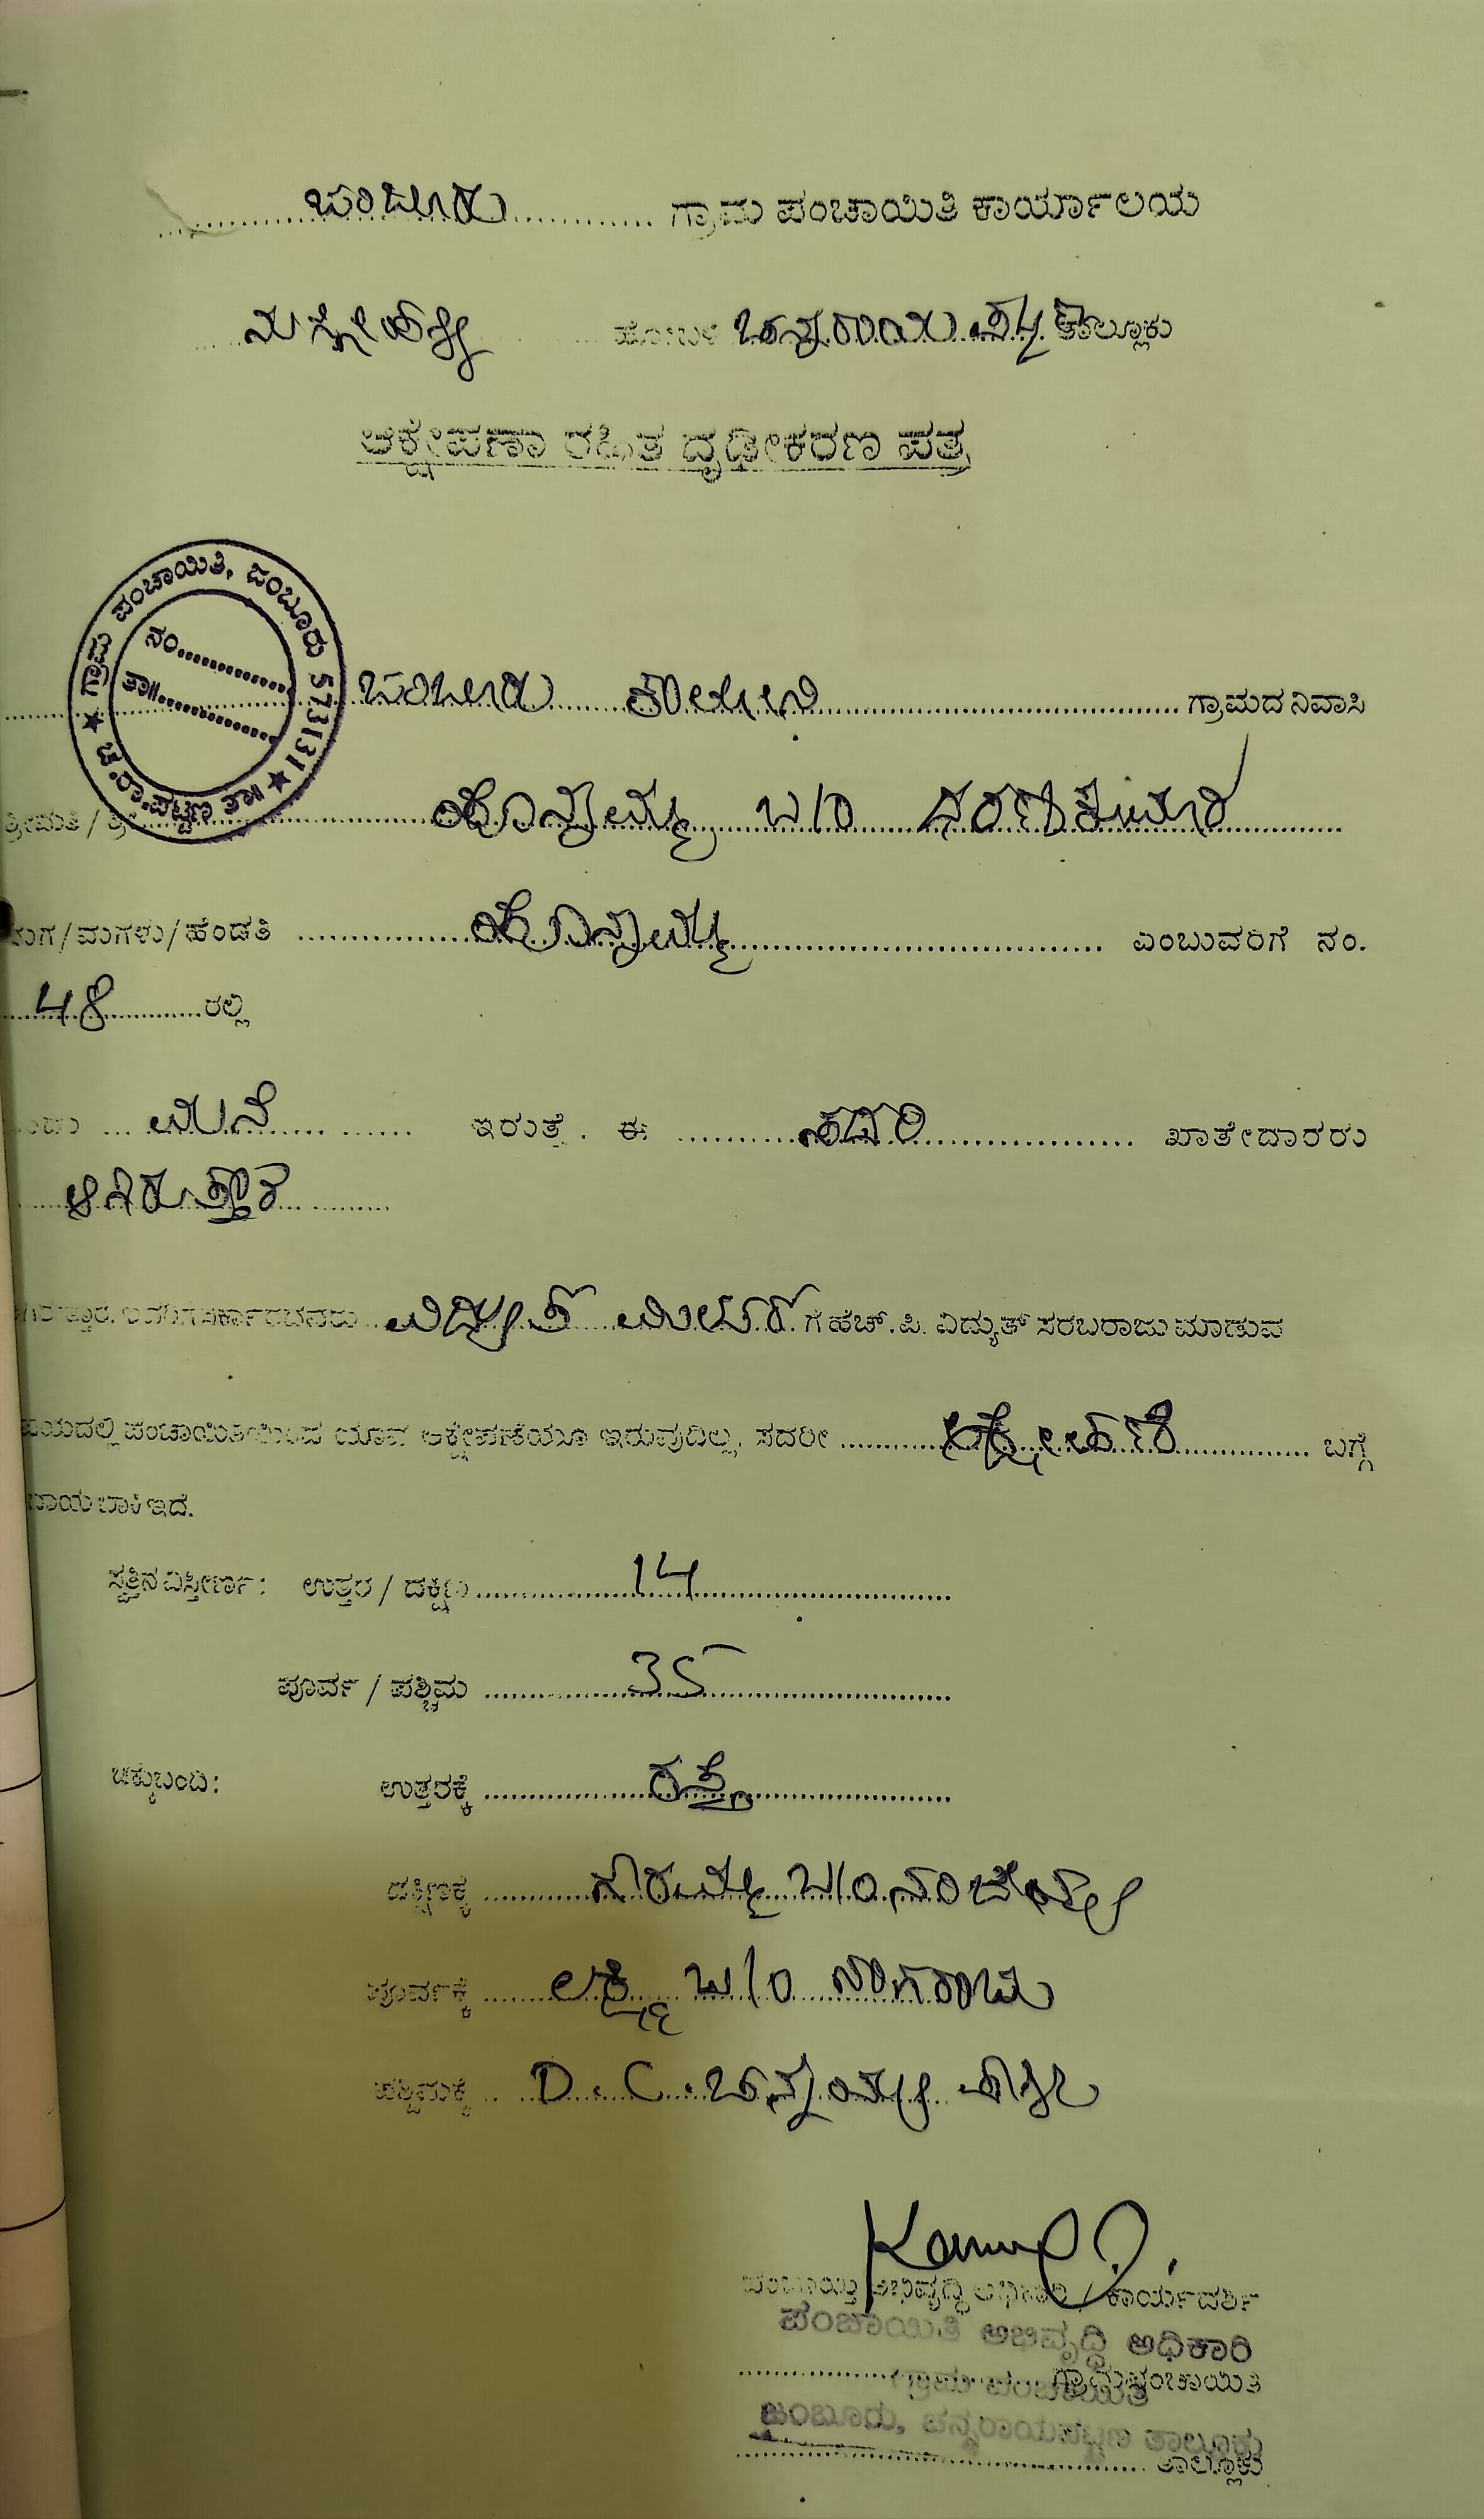 ಜಂಬೂರು ಗ್ರಾಮ ಪಂಚಾಯಿತಿ ಕಾರ್ಯಾಲಯ
ಹೋಬಳಿ ಚನ್ನರಾಯಪಟ್ಟಣ ತಾಲ್ಲೂಕು
ಆಕ್ಷೇಪಣಾ ರಹಿತ ದೃಢೀಕರಣ ಪತ್ರ
ಗ್ರಾಮ ಪಂಚಾಯಿತಿ, ಜಂಬೂರು 573131 ★ ಚ.ರಾ.ಪಟ್ಟಣ ತಾ॥ ★
ನಂ.
ತಾ॥
ಜಂಬೂರು ಕಾಲೋನಿ ಗ್ರಾಮದ ನಿವಾಸಿ
ಶ್ರೀಮತಿ / ಶ್ರೀ ಹೊನ್ನಮ್ಮ ಬಿ/ಂ ಧರಣಿಕುಮಾರ
ಮಗ/ಮಗಳು/ಹೆಂಡತಿ ಹೊನ್ನಮ್ಮ ಎಂಬುವರಿಗೆ ನಂ.
48 ರಲ್ಲಿ
ಮನೆ ಇರುತ್ತೆ. ಈ ಸದರಿ ಖಾತೇದಾರರು
ಆಗಿರುತ್ತಾರೆ
ವಿದ್ಯುತ್ ಮೀಟರ್ ಗೆ ಹೆಚ್.ಪಿ. ವಿದ್ಯುತ್ ಸರಬರಾಜು ಮಾಡುವ
ಪಂಚಾಯಿತಿಯಿಂದ ಯಾವ ಆಕ್ಷೇಪಣೆಯೂ ಇರುವುದಿಲ್ಲ, ಸದರೀ ಆಕ್ಷೇಪಣೆ ಬಗ್ಗೆ
ಬಾಕಿ ಇದೆ.
ಸ್ವತ್ತಿನ ವಿಸ್ತೀರ್ಣ: ಉತ್ತರ / ದಕ್ಷಿಣ 14
ಪೂರ್ವ / ಪಶ್ಚಿಮ 35
ಚಕ್ಕುಬಂದಿ: ಉತ್ತರಕ್ಕೆ ರಸ್ತೆ
ದಕ್ಷಿಣಕ್ಕೆ ಗೌರಮ್ಮ ಬಿ/ಂ ನಂಜಯ್ಯ
ಪೂರ್ವಕ್ಕೆ ಲಕ್ಷ್ಮಿ ಬಿ/ಂ ನಾಗರಾಜು
ಪಶ್ಚಿಮಕ್ಕೆ D.C. ಚನ್ನಯ್ಯ
ಪಂಚಾಯ್ತಿ ಅಭಿವೃದ್ಧಿ ಅಧಿಕಾರಿ / ಕಾರ್ಯದರ್ಶಿ
ಪಂಚಾಯಿತಿ ಅಭಿವೃದ್ಧಿ ಅಧಿಕಾರಿ
ಗ್ರಾಮಪಂಚಾಯಿತಿ
ಗ್ರಾಮ ಪಂಚಾಯಿತಿ
ಜಂಬೂರು, ಚನ್ನರಾಯಪಟ್ಟಣ ತಾಲ್ಲೂಕು
ತಾಲ್ಲೂಕು